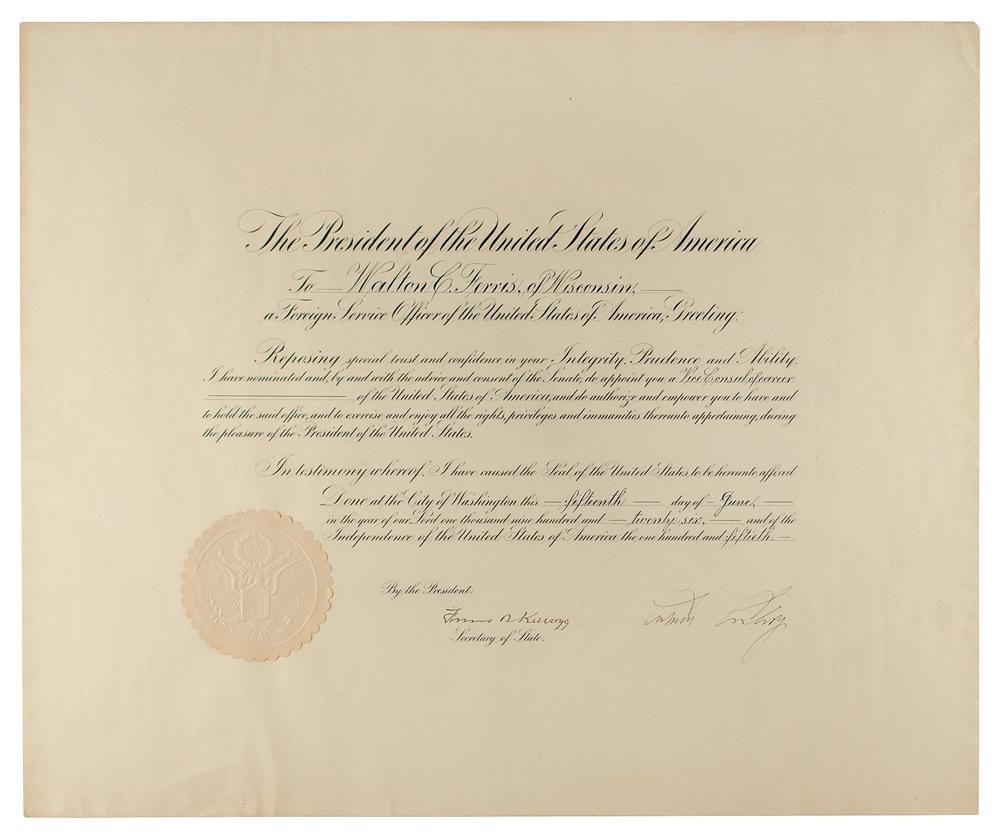 The President of the United States of America
To Walton C. Ferris, of Wisconsin,
a Foreign Service Officer of the United States of America, Greeting:
Reposing special trust and confidence in your Integrity, Prudence and Ability,
I have nominated and, by and with the advice and consent of the Senate, do appoint you a Vice Consul of career
of the United States of America, and do authorize and empower you to have and
to hold the said office, and to exercise and enjoy all the rights, privileges and immunities thereunto appertaining, during
the pleasure of the President of the United States.
In testimony whereof, I have caused the Seal of the United States to be hereunto affixed.
Done at the City of Washington this fifteenth day of June,
in the year of our Lord one thousand nine hundred and twenty six, and of the
Independence of the United States of America the one hundred and fiftieth.
By the President:
Frank B Kellogg
Secretary of State.